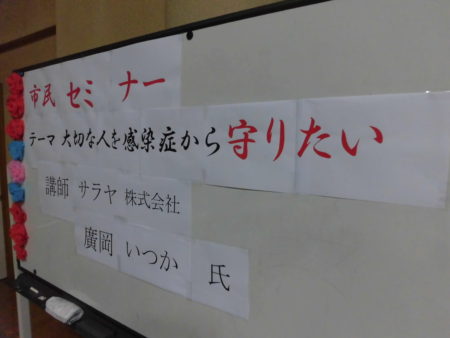 市民 セミナー
テーマ 大切な人を感染症から守りたい
講師 サラヤ 株式会社
廣岡 いつか 氏